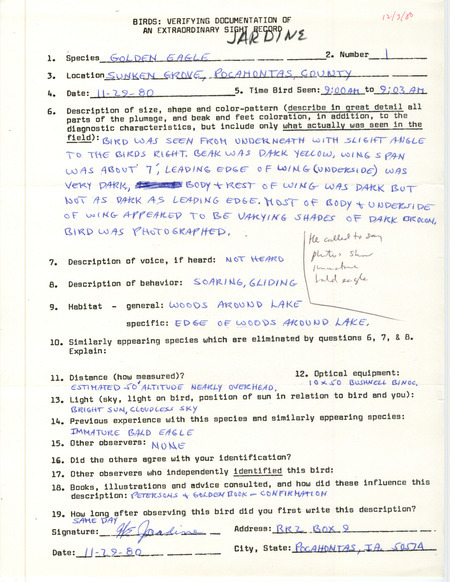 12/3/80
BIRDS: VERIFYING DOCUMENTATION OF
AN EXTRAORDINARY SIGHT RECORD
JARDINE
1. Species GOLDEN EAGLE 2. Number 1
3. Location SUNKEN GROVE, POCAHONTAS, COUNTY
4. Date: 11-29-80 5. Time Bird Seen: 9:00AM to 9:03 AM
6. Description of size, shape and color-pattern (describe in great detail all
parts of the plumage, and beak and feet coloration, in addition, to the
diagnostic characteristics, but include only what actually was seen in the
field): BIRD WAS SEEN FROM UNDERNEATH WITH SLIGHT ANGLE
TO THE BIRDS RIGHT. BEAK WAS DARK YELLOW, WING SPAN
WAS ABOUT 7', LEADING EDGE OF WING (UNDERSIDE) WAS
VERY DARK, BODY + REST OF WING WAS DARK BUT
NOT AS DARK AS LEADING EDGE. MOST OF BODY + UNDERSIDE
OF WING APPEARED TO BE VARYING SHADES OF DARK BROWN.
BIRD WAS PHOTOGRAPHED.
He called to say
photos show
immature
bald eagle
7. Description of voice, if heard: NOT HEARD
8. Description of behavior: SOARING, GLIDING
9. Habitat - general: WOODS AROUND LAKE
specific: EDGE OF WOODS AROUND LAKE.
10. Similarly appearing species which are eliminated by questions 6, 7, & 8.
Explain:
11. Distance (how measured)? 12. Optical equipment:
ESTIMATED 50' ALTITUDE NEARLY OVERHEAD. 10 x 50 BUSHNELL BINOC.
13. Light (sky, light on bird, position of sun in relation to bird and you):
BRIGHT SUN, CLOUDLESS SKY
14. Previous experience with this species and similarly appearing species:
IMMATURE BALD EAGLE
15. Other observers: NONE
16. Did the others agree with your identification?
17. Other observers who independently identified this bird:
18. Books, illustrations and advice consulted, and how did these influence this
description: PETERSONS & GOLDEN BOOK - CONFIRMATION
19. How long after observing this bird did you first write this description?
SAME DAY
Signature: Jardine Address: RR2 BOX 9
Date: 11-29-80 City, State: POCAHONTAS, IA. 50574